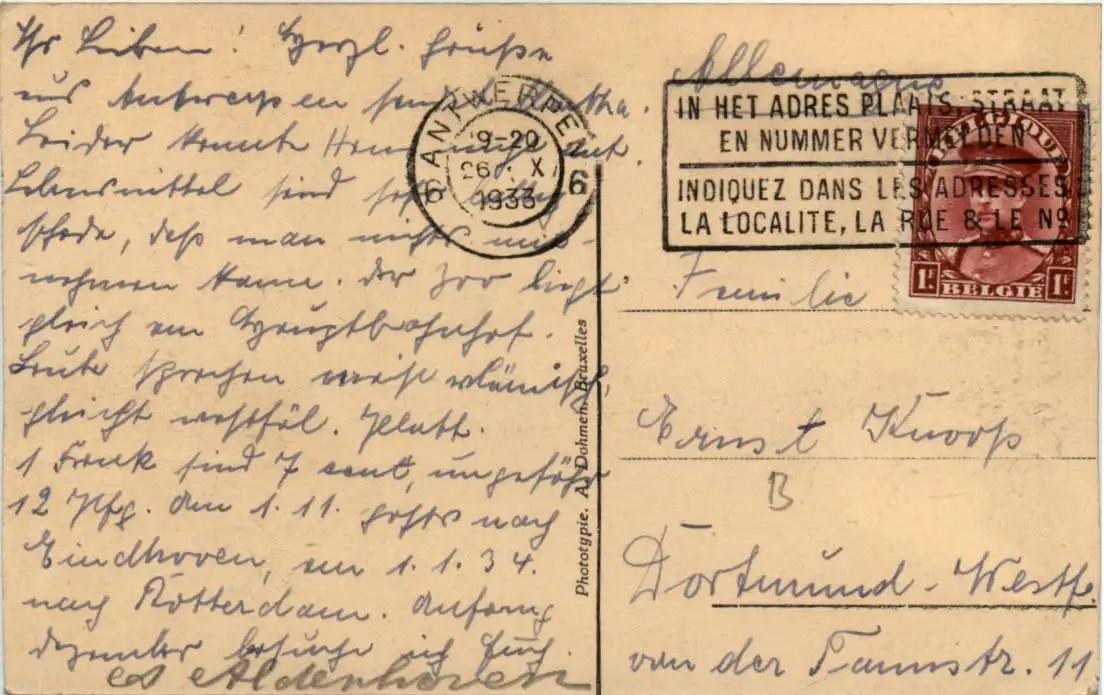 Ihr Lieben! Herzl. Grüße
aus Antwerpen
Leider konnte nicht
Lebensmittel sind sehr
schade, daß man nichts mit-
nehmen kann. Der Zoo liegt
gleich am Hauptbahnhof.
Leute sprechen meist vlämisch,
gleicht westfäl. Platt.
1 Frank sind 7 cent, ungefähr
12 Pfg. Am 1.11. gehts nach
Eindhoven, am 1.1.34.
nach Rotterdam. Anfang
Dezember besuche ich Euch.
Aldenhoven
ANTWERPEN
6 6
9-20
26 X
1933
Allemagne
IN HET ADRES PLAATS, STRAAT
EN NUMMER VERMELDEN
INDIQUEZ DANS LES ADRESSES
LA LOCALITE, LA RUE & LE No
BELGIQUE
1F BELGIE 1F
Familie
Ernst Knorp
B
Dortmund-Westf.
von der Tannstr. 11
Phototypie. A. Dohmen, Bruxelles